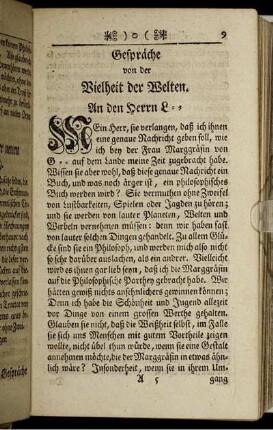 )o( 9
Gespräche
von der
Vielheit der Welten.
An den Herrn L--
MEin Herr, sie verlangen, daß ich ihnen
eine genaue Nachricht geben soll, wie
ich bey der Frau Marggräfin von
G-- auf dem Lande meine Zeit zugebracht habe.
Wissen sie aber wohl, daß diese genaue Nachricht ein
Buch, und was noch ärger ist, ein philosophisches
Buch werden wird? Sie vermuthen ohne Zweifel
von Lustbarkeiten, Spielen oder Jagden zu hören;
und sie werden von lauter Planeten, Welten und
Wirbeln vernehmen müssen: denn wir haben fast
von lauter solchen Dingen gehandelt. Zu allem Glü-
cke sind sie ein Philosoph, und werden mich also nicht
so sehr darüber auslachen, als ein andrer. Vielleicht
wird es ihnen gar lieb seyn, daß ich die Marggräfin
auf die Philosophische Parthey gebracht habe. Wir
hätten gewiß nichts ansehnlichers gewinnen können;
Denn ich habe die Schönheit und Jugend allezeit
vor Dinge von einem grossen Werthe gehalten.
Glauben sie nicht, daß die Weißheit selbst, im Falle
sie sich uns Menschen mit gutem Vortheile zeigen
wollte, nicht übel thun würde, wenn sie eine Gestalt
annehmen möchte, die der Marggräfin in etwas ähn-
lich wäre? Insonderheit, wenn sie in ihrem Um-
A 5 gang
Gespräche